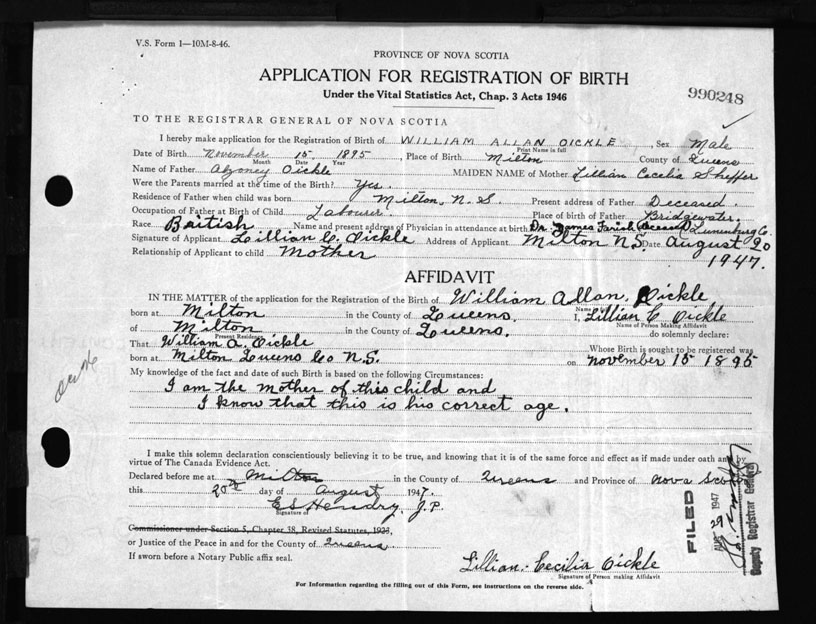 V.S. Form 1—10M-8-46.
PROVINCE OF NOVA SCOTIA
APPLICATION FOR REGISTRATION OF BIRTH
990248
Under the Vital Statistics Act, Chap. 3 Acts 1946
TO THE REGISTRAR GENERAL OF NOVA SCOTIA
I hereby make application for the Registration of Birth of WILLIAM ALLAN OICKLE Sex Male
Print Name in full
Date of Birth November 15 1895, Place of Birth Milton County of Queens
Month Date Year
Name of Father Oickle MAIDEN NAME of Mother Lillian Cecelia Sheffer
Were the Parents married at the time of the Birth? Yes.
Residence of Father when child was born Milton, N.S. Present address of Father Deceased.
Occupation of Father at Birth of Child Labourer. Place of birth of Father Bridgewater,
Race British Name and present address of Physician in attendance at birth Dr. James Farish Lunenburg Co.
Signature of Applicant Lillian C. Oickle Address of Applicant Milton N.S. Date August 20
Relationship of Applicant to child Mother 1947.
AFFIDAVIT
IN THE MATTER of the application for the Registration of the Birth of William Allan Oickle
Name in full
born at Milton in the County of Queens, I, Lillian C Oickle
Name of Person Making Affidavit
of Milton in the County of Queens. do solemnly declare:
Present Residence
That William A. Oickle Whose Birth is sought to be registered was
born at Milton Queens Co N.S. on November 15 1895
My knowledge of the fact and date of such Birth is based on the following Circumstances:
I am the mother of this child and
I know that this is his correct age.
I make this solemn declaration conscientiously believing it to be true, and knowing that it is of the same force and effect as if made under oath and by
virtue of The Canada Evidence Act.
Declared before me at Milton in the County of Queens and Province of Nova Scotia
this 20th day of August 1947.
E S Hendry, J.P.
Signature of
Commissioner under Section 5, Chapter 38, Revised Statutes, 1923,
or Justice of the Peace in and for the County of Queens
If sworn before a Notary Public affix seal.
Lillian Cecilia Oickle
Signature of Person making Affidavit
For Information regarding the filling out of this Form, see instructions on the reverse side.
FILED
29 1947
Deputy Registrar General